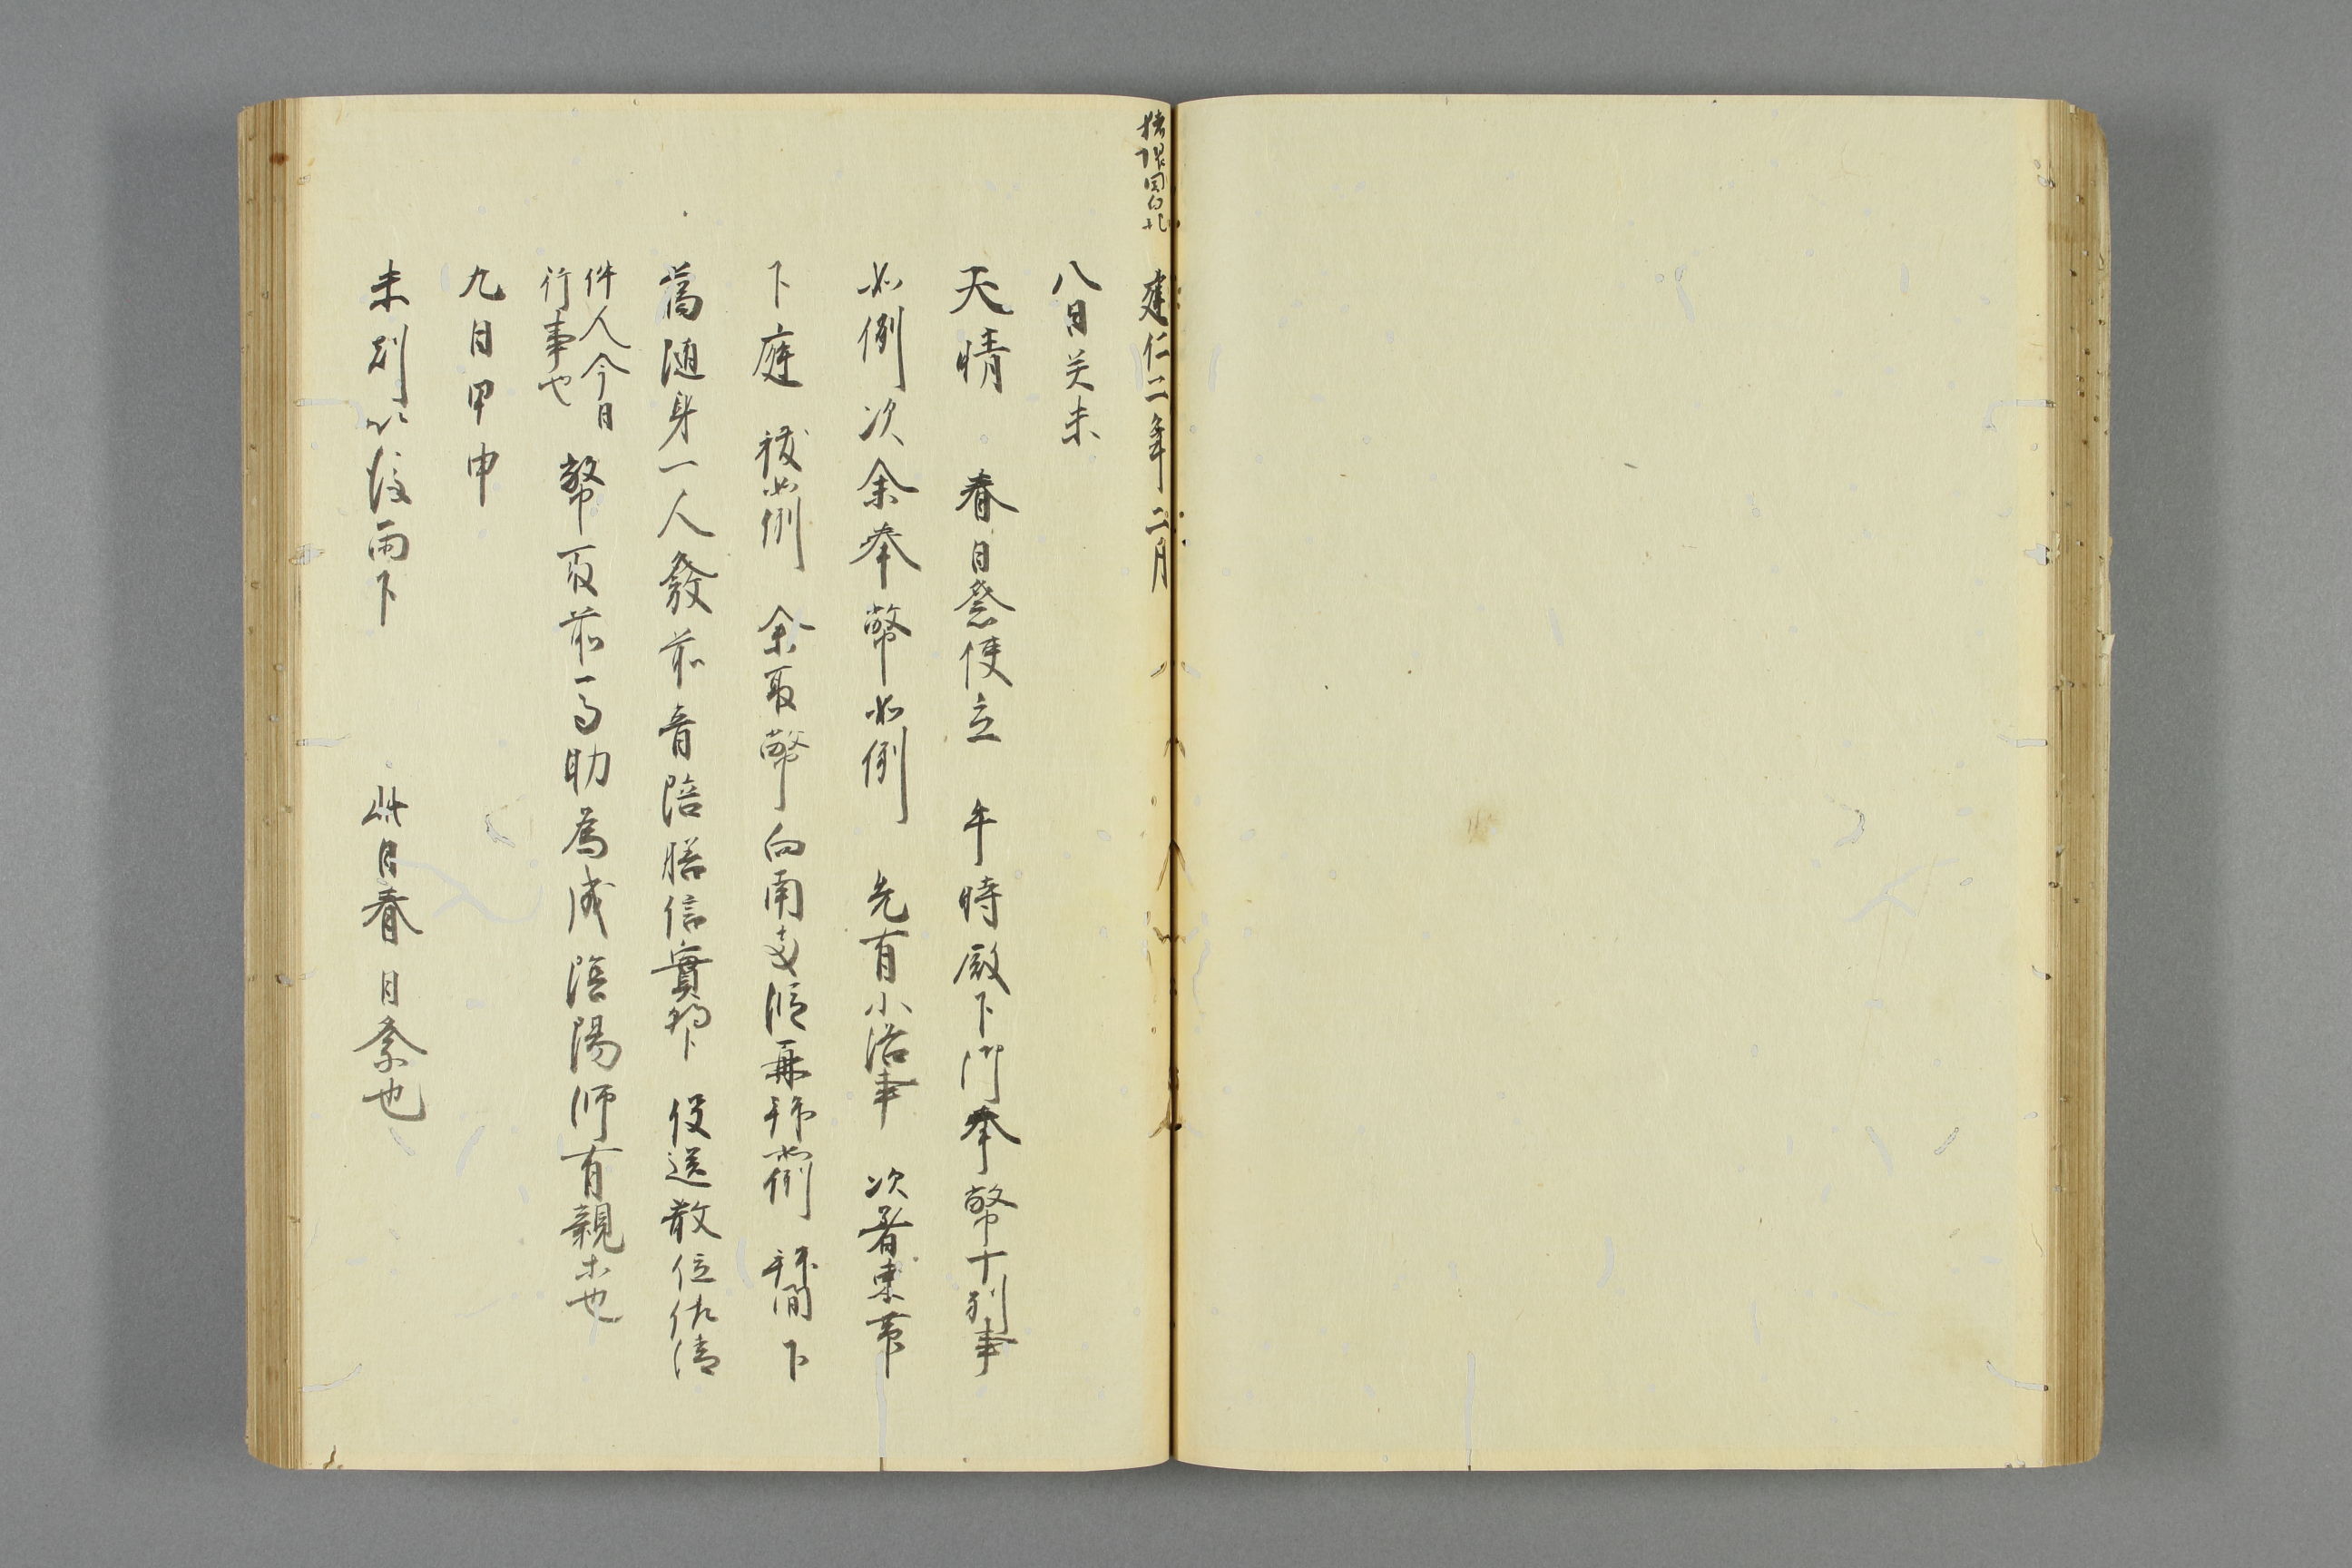 猪隈関白記
建仁二年二月
八日癸未
天晴　春日祭使立　午時殿下御奉幣十列事
如例次余奉幣如例　先有小浴事　次着束帯
下庭　祓如例　余取幣向南両段再拝如例　拝間下
﨟随身一人發前音陪膳信實朝臣　役送散位仲清
件人今日
行事也　幣取前右馬助為成陰陽師有親等也
九日甲申
未剋以後雨下　此日春日祭也